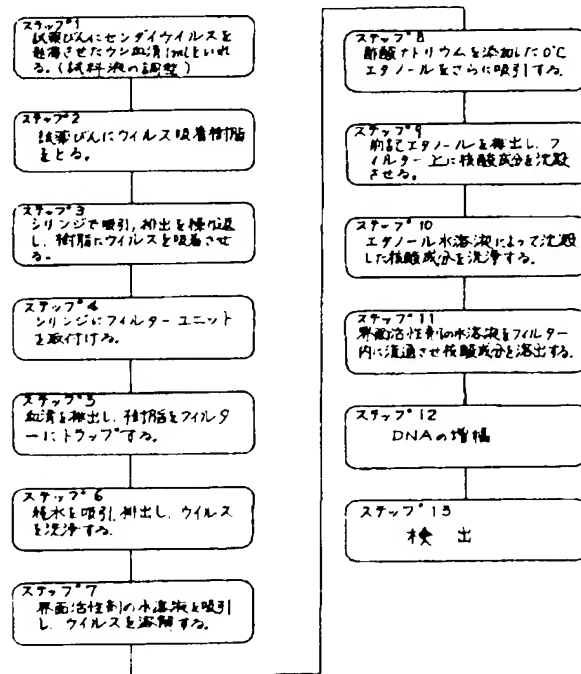 ステップ1
試薬びんにセンダイウイルスを
懸濁させたウシ血清1mlをいれ
る。(試料液の調整)
ステップ2
試薬びんにウイルス吸着樹脂
をとる。
ステップ3
シリンジで吸引,排出を繰り返
し、樹脂にウイルスを吸着させ
る。
ステップ4
シリンジにフィルターユニット
を取付ける。
ステップ5
血清を排出し、樹脂をフィルタ
ーにトラップする。
ステップ6
純水を吸引,排出し、ウイルス
を洗浄する。
ステップ7
界面活性剤の水溶液を吸引
し、ウイルスを溶解する。
ステップ8
酢酸ナトリウムを添加した0℃
エタノールをさらに吸引する。
ステップ9
前記エタノールを排出し、フ
ィルター上に核酸成分を沈殿
させる。
ステップ10
エタノール水溶液によって沈殿
した核酸成分を洗浄する。
ステップ11
界面活性剤の水溶液をフィルター
内に流通させ核酸成分を溶出する。
ステップ12
DNAの増幅
ステップ13
検出